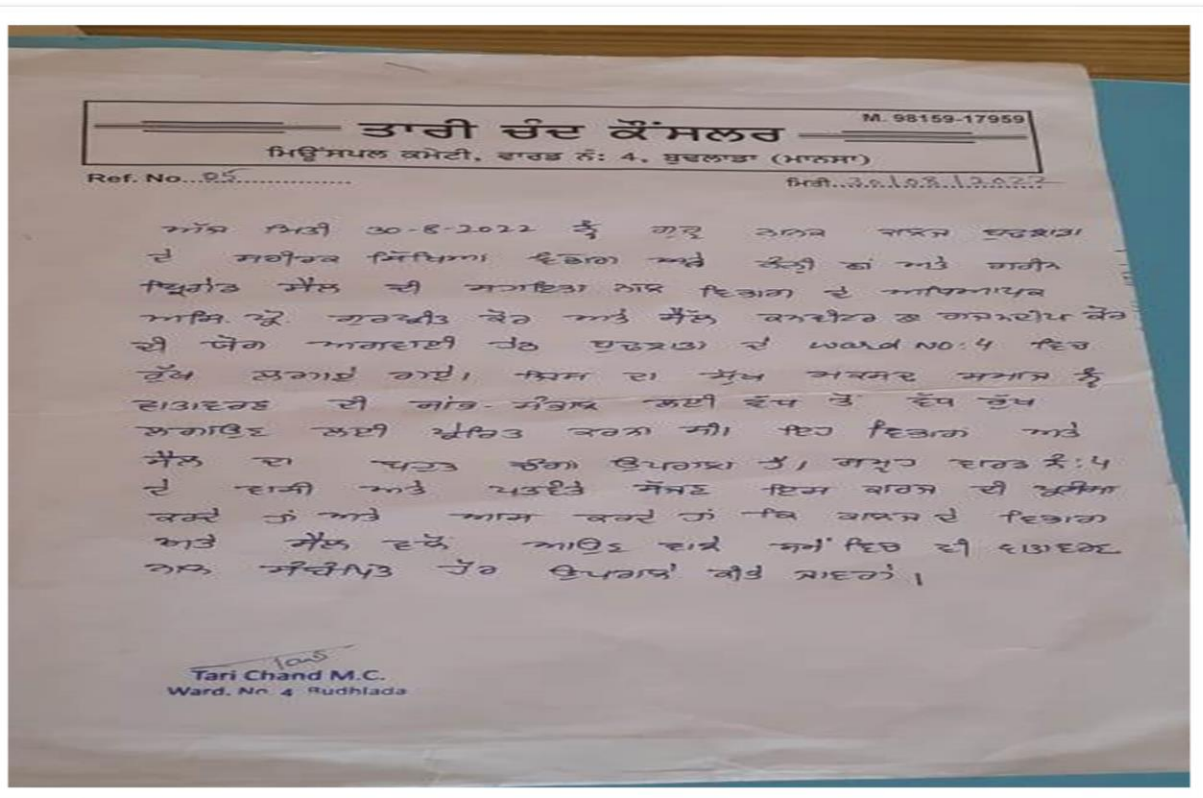 M. 98159-17959
ਤਾਰੀ ਚੰਦ ਕੌਂਸਲਰ
ਮਿਊਂਸਪਲ ਕਮੇਟੀ, ਵਾਰਡ ਨੰ: 4, ਬੁਢਲਾਡਾ (ਮਾਨਸਾ)
Ref. No. 05 ਮਿਤੀ 30/08/2022
ਅੱਜ ਮਿਤੀ 30-8-2022 ਨੂੰ ਗੁਰੂ ਨਾਨਕ ਕਾਲਜ ਬੁਢਲਾਡਾ
ਦੇ ਸਰੀਰਕ ਸਿੱਖਿਆ ਵਿਭਾਗ ਅਤੇ ਅਤੇ ਗਰੀਨ
ਬ੍ਰਿਗੇਡ ਸੈੱਲ ਦੀ ਸਹਾਇਤਾ ਨਾਲ ਵਿਭਾਗ ਦੇ ਅਧਿਆਪਕ
ਅਸਿ. ਪ੍ਰੋ. ਕੌਰ ਅਤੇ ਸੈੱਲ ਕਨਵੀਨਰ ਡਾ ਕੌਰ
ਦੀ ਯੋਗ ਅਗਵਾਈ ਹੇਠ ਬੁਢਲਾਡਾ ਦੇ ward NO: 4 ਵਿਚ
ਰੁੱਖ ਲਗਾਏ ਗਏ। ਜਿਸ ਦਾ ਮੁੱਖ ਮਕਸਦ ਸਮਾਜ ਨੂੰ
ਵਾਤਾਵਰਣ ਦੀ ਸਾਂਭ-ਸੰਭਾਲ ਲਈ ਵੱਧ ਤੋਂ ਵੱਧ ਰੁੱਖ
ਲਗਾਉਣ ਲਈ ਪ੍ਰੇਰਿਤ ਕਰਨਾ ਸੀ। ਇਹ ਵਿਭਾਗ ਅਤੇ
ਸੈੱਲ ਦਾ ਬਹੁਤ ਚੰਗਾ ਉਪਰਾਲਾ ਹੈ। ਸਮੂਹ ਵਾਰਡ ਨੰ: 4
ਦੇ ਵਾਸੀ ਅਤੇ ਪਤਵੰਤੇ ਸੱਜਣ ਇਸ ਕਾਰਜ ਦੀ
ਕਰਦੇ ਹਾਂ ਅਤੇ ਆਸ ਕਰਦੇ ਹਾਂ ਕਿ ਕਾਲਜ ਦੇ ਵਿਭਾਗ
ਅਤੇ ਸੈੱਲ ਵਲੋਂ ਆਉਣ ਵਾਲੇ ਸਮੇਂ ਵਿਚ ਵੀ ਵਾਤਾਵਰਣ
ਨਾਲ ਸੰਬੰਧਿਤ ਹੋਰ ਉਪਰਾਲੇ ਕੀਤੇ ਜਾਣਗੇ।
Tari Chand M.C.
Ward. No 4 Budhlada